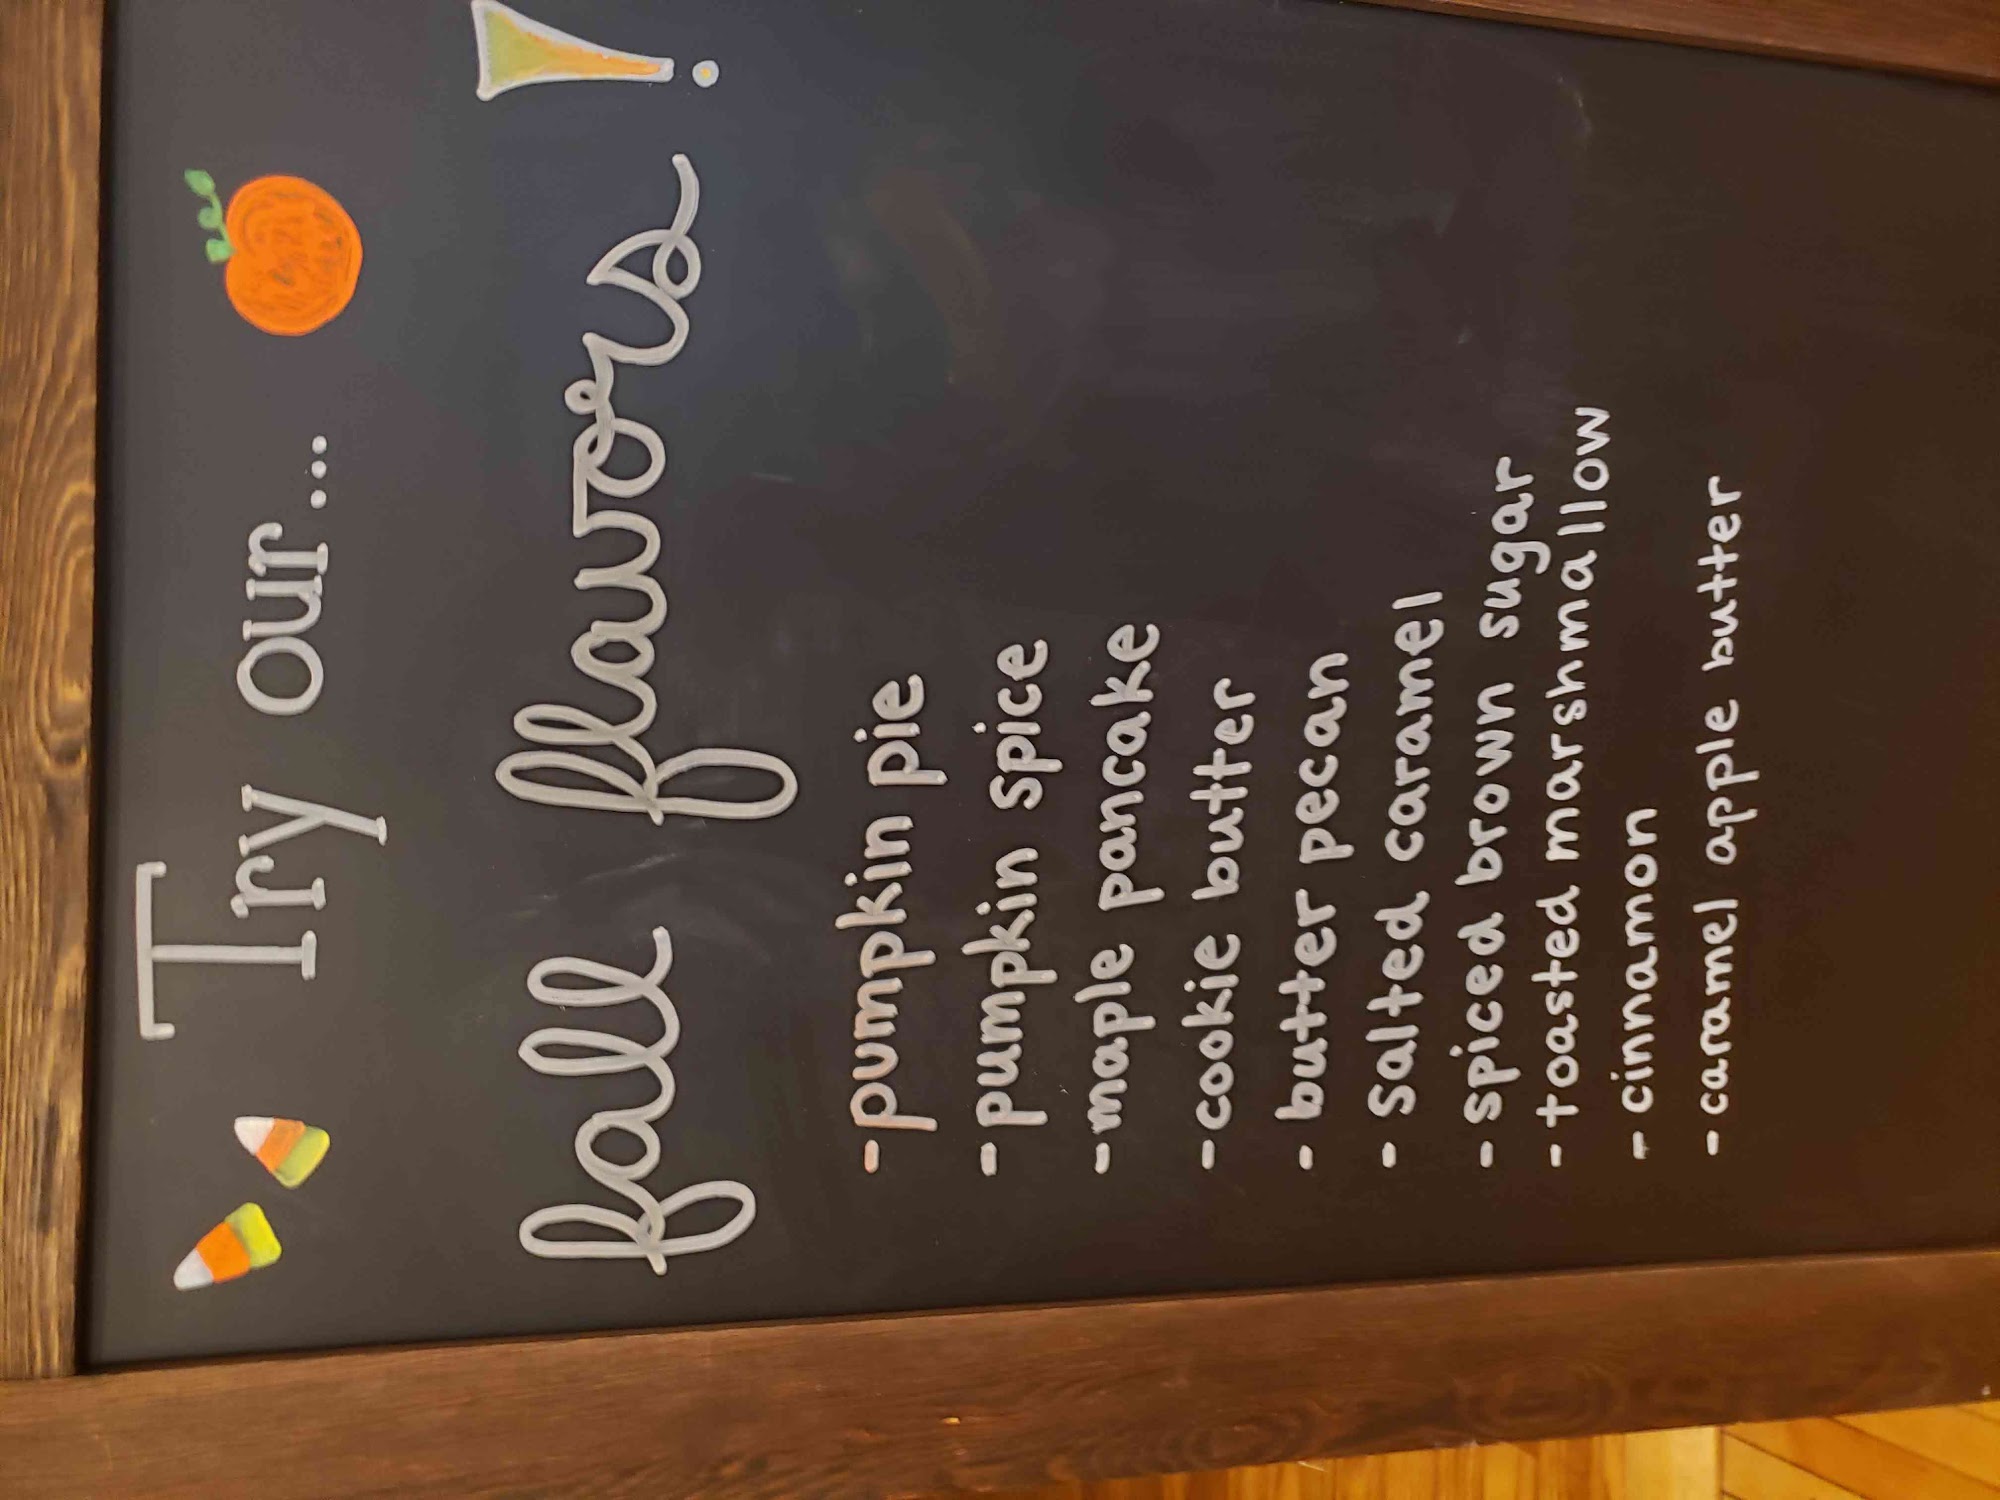 Try our...
fall flavors!
-pumpkin pie
-pumpkin spice
-maple pancake
-cookie butter
- butter pecan
- salted caramel
- spiced brown sugar
- toasted marshmallow
- cinnamon
- caramel apple butter